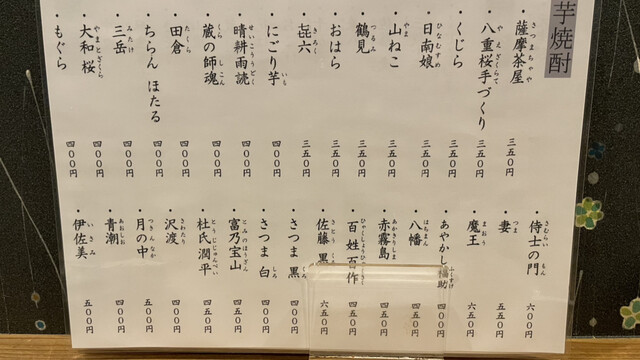 芋焼酎
・薩摩茶屋 さつまちゃや 三五〇円
・八重桜手づくり やえざくらて 三五〇円
・くじら 三五〇円
・日南娘 ひなむすめ 三五〇円
・山ねこ やま 三五〇円
・鶴見 つるみ 三五〇円
・おはら 三五〇円
・㐂六 きろく 三五〇円
・にごり芋 いも 四〇〇円
・晴耕雨読 せいこううどく 四〇〇円
・蔵の師魂 くら しこん 四〇〇円
・田倉 たくら 四〇〇円
・ちらん ほたる 四〇〇円
・三岳 みたけ 四〇〇円
・大和桜 やまとざくら 四〇〇円
・もぐら 四〇〇円
・侍士の門 さむらい もん 六〇〇円
・妻 つま 五五〇円
・魔王 まおう 六五〇円
・あやかし福助 ふくすけ 四〇〇円
・八幡 はちまん 四五〇円
・赤霧島 あかきりしま 四五〇円
・百姓百作 四五〇円
・佐藤 黒 さとう 六五〇円
・さつま 黒 四〇〇円
・さつま 白 しろ 四〇〇円
・富乃宝山 とみのほうざん 四五〇円
・杜氏潤平 とうじじゅんぺい 四五〇円
・沢渡 さわたり 四〇〇円
・月の中 つき んなか 五〇〇円
・青潮 あおしお 四〇〇円
・伊佐美 いさみ 五〇〇円